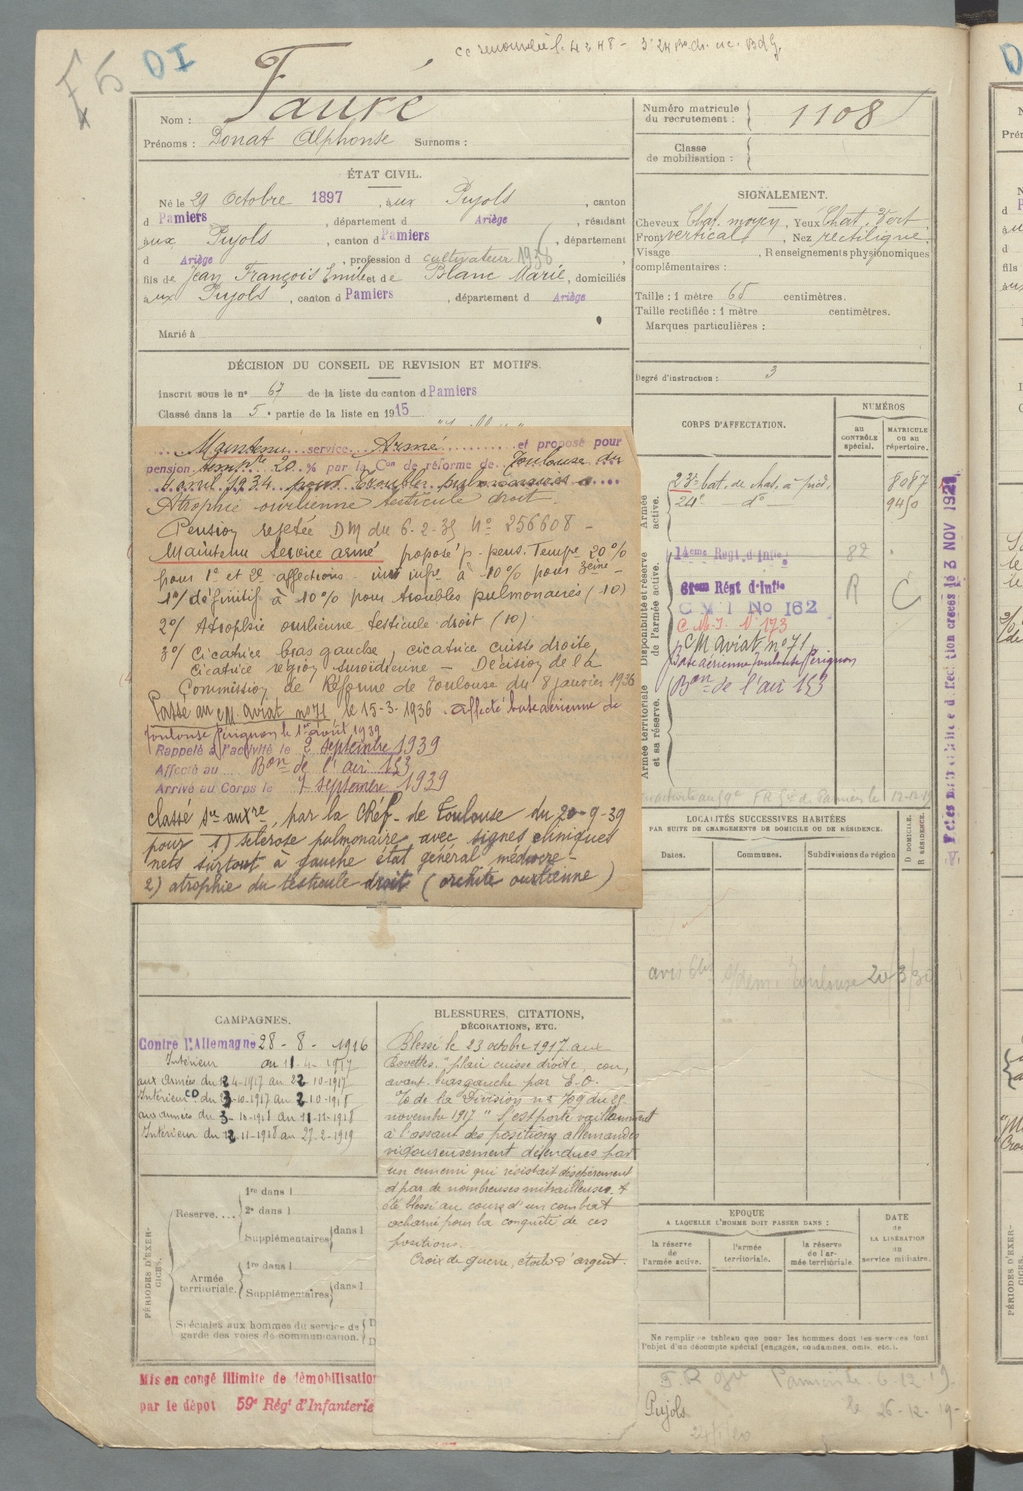 DI
Nom : Fauré
Prénoms : Donat Alphonse Surnoms :
Numéro matricule du recrutement : 1108
Classe de mobilisation :
ÉTAT CIVIL.
Né le 29 Octobre 1897, aux Pujols, canton
d Pamiers, département d Ariège, résidant
aux Pujols, canton d Pamiers, département
d Ariège, profession d cultivateur 1936
fils de Jean François Emile et de Blanc Marie, domiciliés
aux Pujols, canton d Pamiers, département d Ariège
Marié à
SIGNALEMENT.
Cheveux Chat. moyen, Yeux Chat. Vert
Front vertical, Nez rectiligne
Visage , Renseignements physionomiques
complémentaires :
Taille : 1 mètre 65 centimètres.
Taille rectifiée : 1 mètre centimètres.
Marques particulières :
Degré d'instruction : 3
DÉCISION DU CONSEIL DE REVISION ET MOTIFS.
Inscrit sous le n° 67 de la liste du canton d Pamiers
Classé dans la 5e partie de la liste en 1915
Maintenu service Armé et proposé pour
pension temp.re 20 % par la Con de réforme de Toulouse du
avril 1934 pour troubles pulmonaires
Atrophie ourlienne testicule droit.
Pension rejetée DM du 6-2-35 N° 256608 -
Maintenu service armé proposé p. pens. Tempre 20%
pour 1° et 2° affections. inf à 10% pour 3eme -
1°/ définitif à 10% pour troubles pulmonaires (10)
2°/ Atrophie ourlienne testicule droit (10).
3°/ Cicatrice bras gauche, cicatrice cuisse droite,
Cicatrice région - Décision de la
Commission de Réforme de Toulouse du 8 janvier 1936
Passé au CM aviat n° 71, le 15-3-1936. affecté base aérienne de
Toulouse Pérignon le 1er août 1939
Rappelé à l'activité le 2 septembre 1939
Affecté au Bon de l'air 153
Arrivé au Corps le 7 septembre 1939
classé Sce auxre, par la CRéf. de Toulouse du 20-9-39
pour 1) sclérose pulmonaire avec signes cliniques
nets surtout à gauche état général médiocre -
2) atrophie du testicule droit (orchite ourlienne)
CORPS D'AFFECTATION.
NUMÉROS
au CONTRÔLE spécial.
MATRICULE ou au répertoire.
Armée active.
23e bat. de chas. à pied 8087
24e - do - 9450
Disponibilité et réserve de l'armée active.
14eme Regt d'Infie 82
61eme Régt d'Infie R C
C M I No 162
C.M.I. N° 173
CM aviat n° 71
Base aérienne Toulouse Pérignon
Bon de l'air 153
Armée territoriale et sa réserve.
LOCALITÉS SUCCESSIVES HABITÉES
PAR SUITE DE CHANGEMENTS DE DOMICILE OU DE RÉSIDENCE.
Dates. Communes. Subdivisions de région
D DOMICILE.
R RÉSIDENCE.
CAMPAGNES.
Contre l'Allemagne 28-8-1916
Intérieur au 11-4-1917
aux Armées du 12-4-1917 au 22-10-1917
Intérieur CD du 23-10-1917 au 2-10-1918
aux armées du 3-10-1918 au 11-11-1918
Intérieur du 12-11-1918 au 27-2-1919
BLESSURES, CITATIONS,
DÉCORATIONS, ETC.
Blessé le 23 octobre 1917 aux
Bovettes. "plaie cuisse droite, cou,
avant-bras gauche par E.O.
O/ de la Division n° 709 du 25
novembre 1917 "S'est porté vaillamment
à l'assaut des positions allemandes
vigoureusement défendues par
un ennemi qui résistait désespérément
et par de nombreuses mitrailleuses. A
été blessé au cours d'un combat
acharné pour la conquête de ces
positions.
Croix de guerre, étoile d'argent.
PÉRIODES D'EXERCICES.
Réserve.... 1re dans l
2e dans l
Supplémentaires dans l
Armée territoriale. 1re dans l
Supplémentaires dans l
Spéciales aux hommes du service de
garde des voies de communication.
EPOQUE
A LAQUELLE L'HOMME DOIT PASSER DANS :
la réserve de l'armée active.
l'armée territoriale.
la réserve de l'armée territoriale.
DATE de LA LIBÉRATION du service militaire.
Ne remplir ce tableau que pour les hommes dont les services font
l'objet d'un décompte spécial (engagés, condamnés, omis, etc.).
Mis en congé illimité de démobilisation
par le dépôt 59e Régt d'Infanterie
Pujols
26-12-19